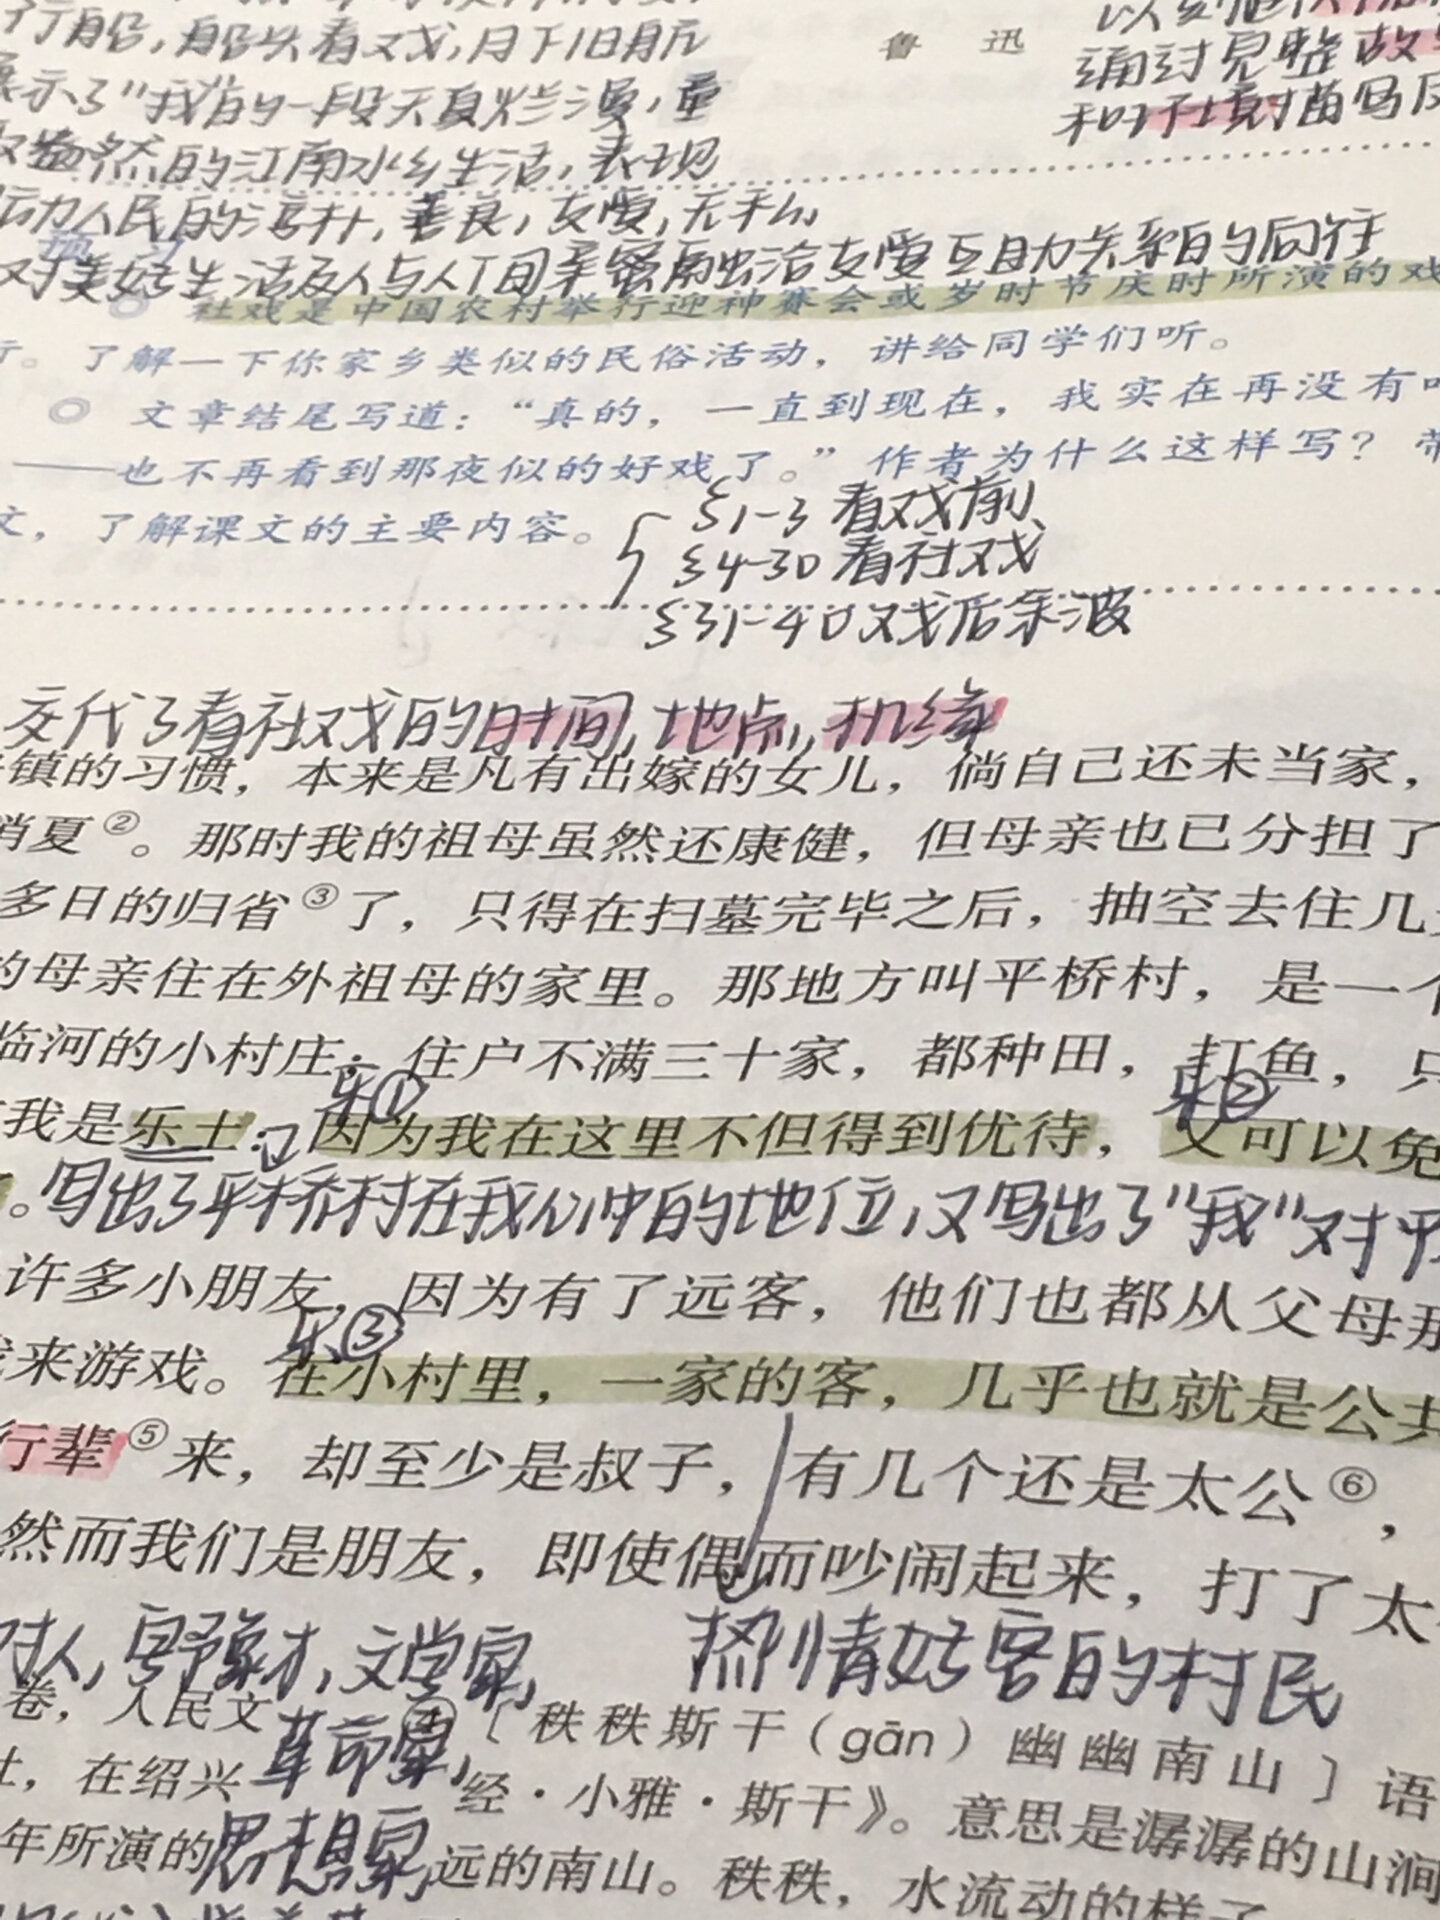 行船,船头看戏,月下归航
展示了“我”的一段天真烂漫,童
趣盎然的江南水乡生活,表现
劳动人民的淳朴,善良,友爱,无私
对美好生活及人与人间亲密融洽友爱互助关系的向往
鲁 迅
通过完整故
和环境描写
预 习
◎ 社戏是中国农村举行迎神赛会或岁时节庆时所演的戏
行。了解一下你家乡类似的民俗活动，讲给同学们听。
◎ 文章结尾写道：“真的，一直到现在，我实在再没有吃
——也不再看到那夜似的好戏了。”作者为什么这样写？带
文，了解课文的主要内容。
§1-3 看戏前
§4-30 看社戏
§31-40 戏后余波
交代了看社戏的时间,地点,机缘
镇的习惯，本来是凡有出嫁的女儿，倘自己还未当家，
消夏②。那时我的祖母虽然还康健，但母亲也已分担了
多日的归省③了，只得在扫墓完毕之后，抽空去住几天
的母亲住在外祖母的家里。那地方叫平桥村，是一个
临河的小村庄；住户不满三十家，都种田，打鱼，只
乐① 乐②
我是乐土：因为我在这里不但得到优待，又可以免
。写出了平桥村在我心中的地位,又写出了“我”对平
许多小朋友，因为有了远客，他们也都从父母那
乐③
来游戏。在小村里，一家的客，几乎也就是公共
行辈⑤来，却至少是叔子，有几个还是太公⑥，
然而我们是朋友，即使偶而吵闹起来，打了太
热情好客的村民
树人,字豫才,文学家,
革命家,
思想家,
卷，人民文
社，在绍兴
年所演的
④〔秩秩斯干（gān）幽幽南山〕语
经·小雅·斯干》。意思是潺潺的山涧
远的南山。秩秩，水流动的样子